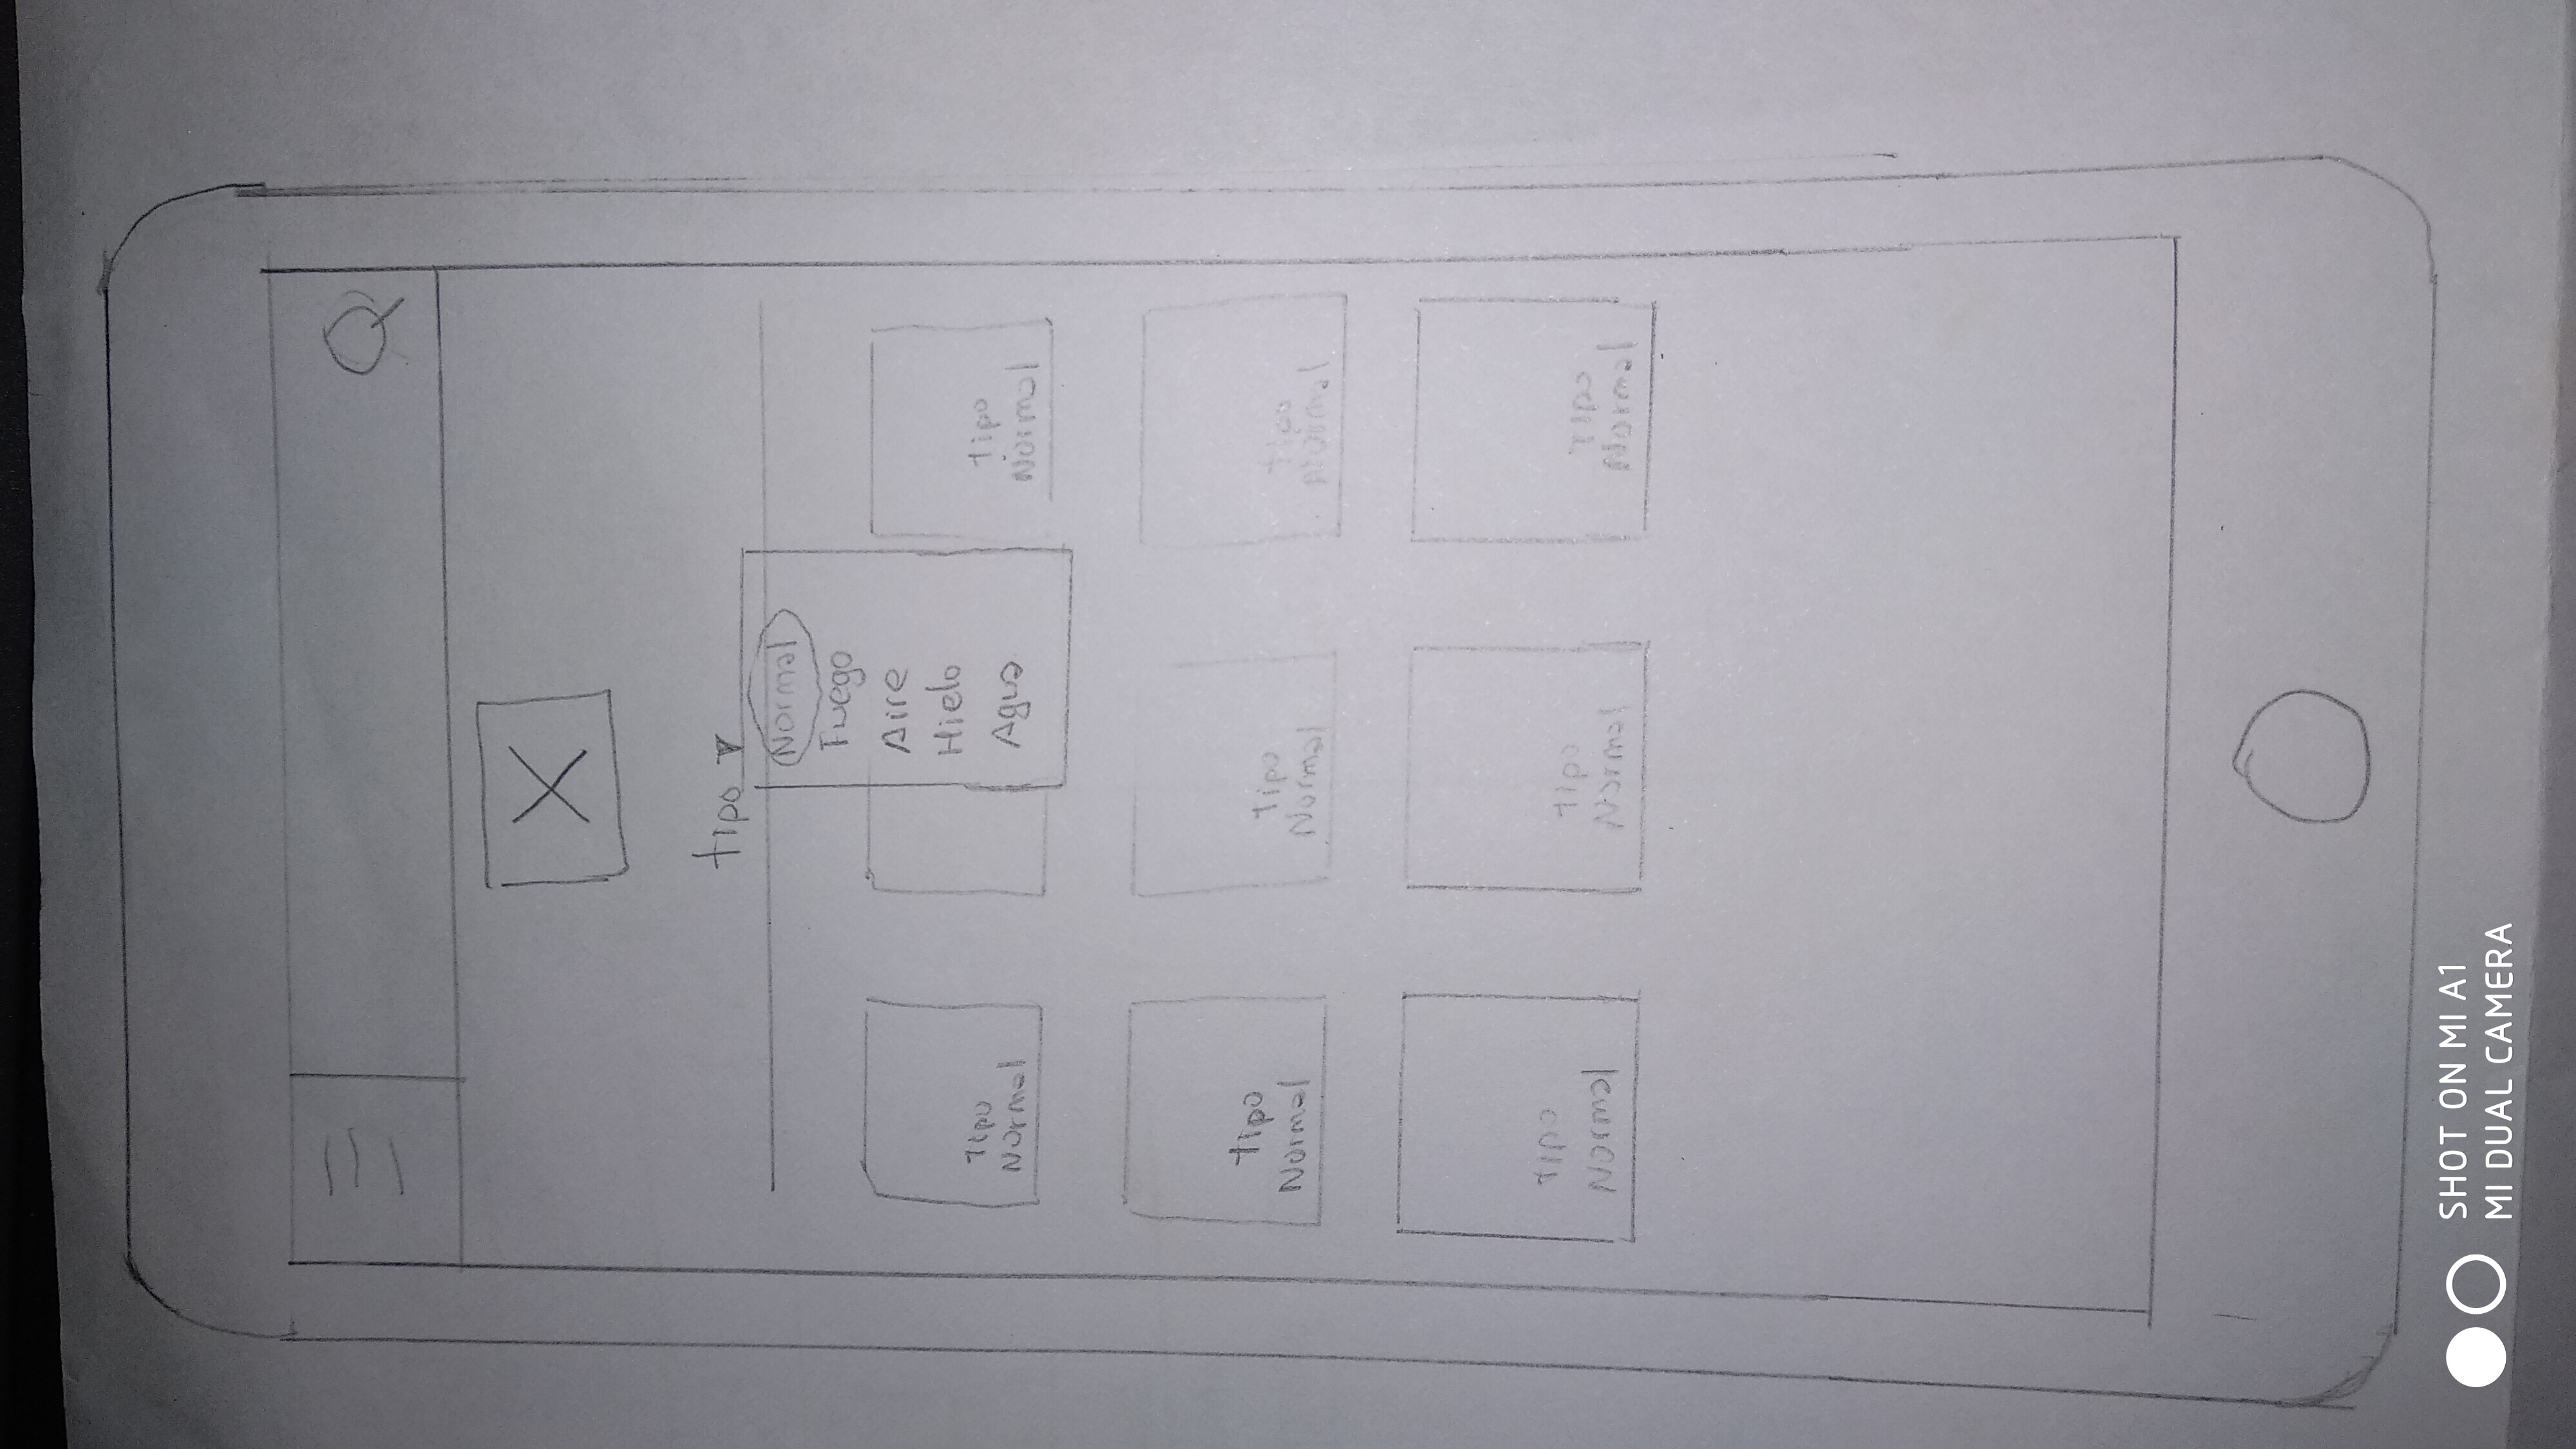 tipo ▼
Normal
Fuego
Aire
Hielo
Agua
Tipo
Normal
tipo
Normal
tipo
Normal
tipo
Normal
tipo
Normal
Tipo
Normal
tipo
Normal
Tipo
Normal
SHOT ON MI A1
MI DUAL CAMERA